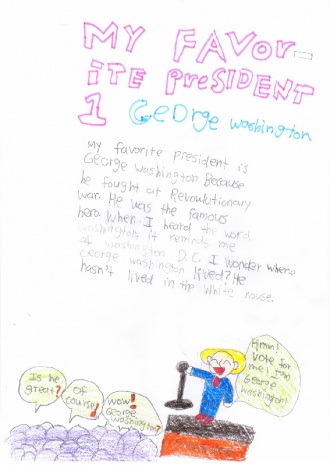 MY FAVOR-
ITE PRESIDENT
1 GEORGE Washington
My favorite president is
George Washington Because
he fought at Revoulutionary
war. He was the famous
hero. When I heard the word
Washington, it reminds me
of Washington D.C. I wonder where
George Washington lived? He
hasn't lived in the White House.
Is he
great?
Of
course!
Wow!
George
Washington?
Hmm!
Vote for
me! I'm
George
Washington!